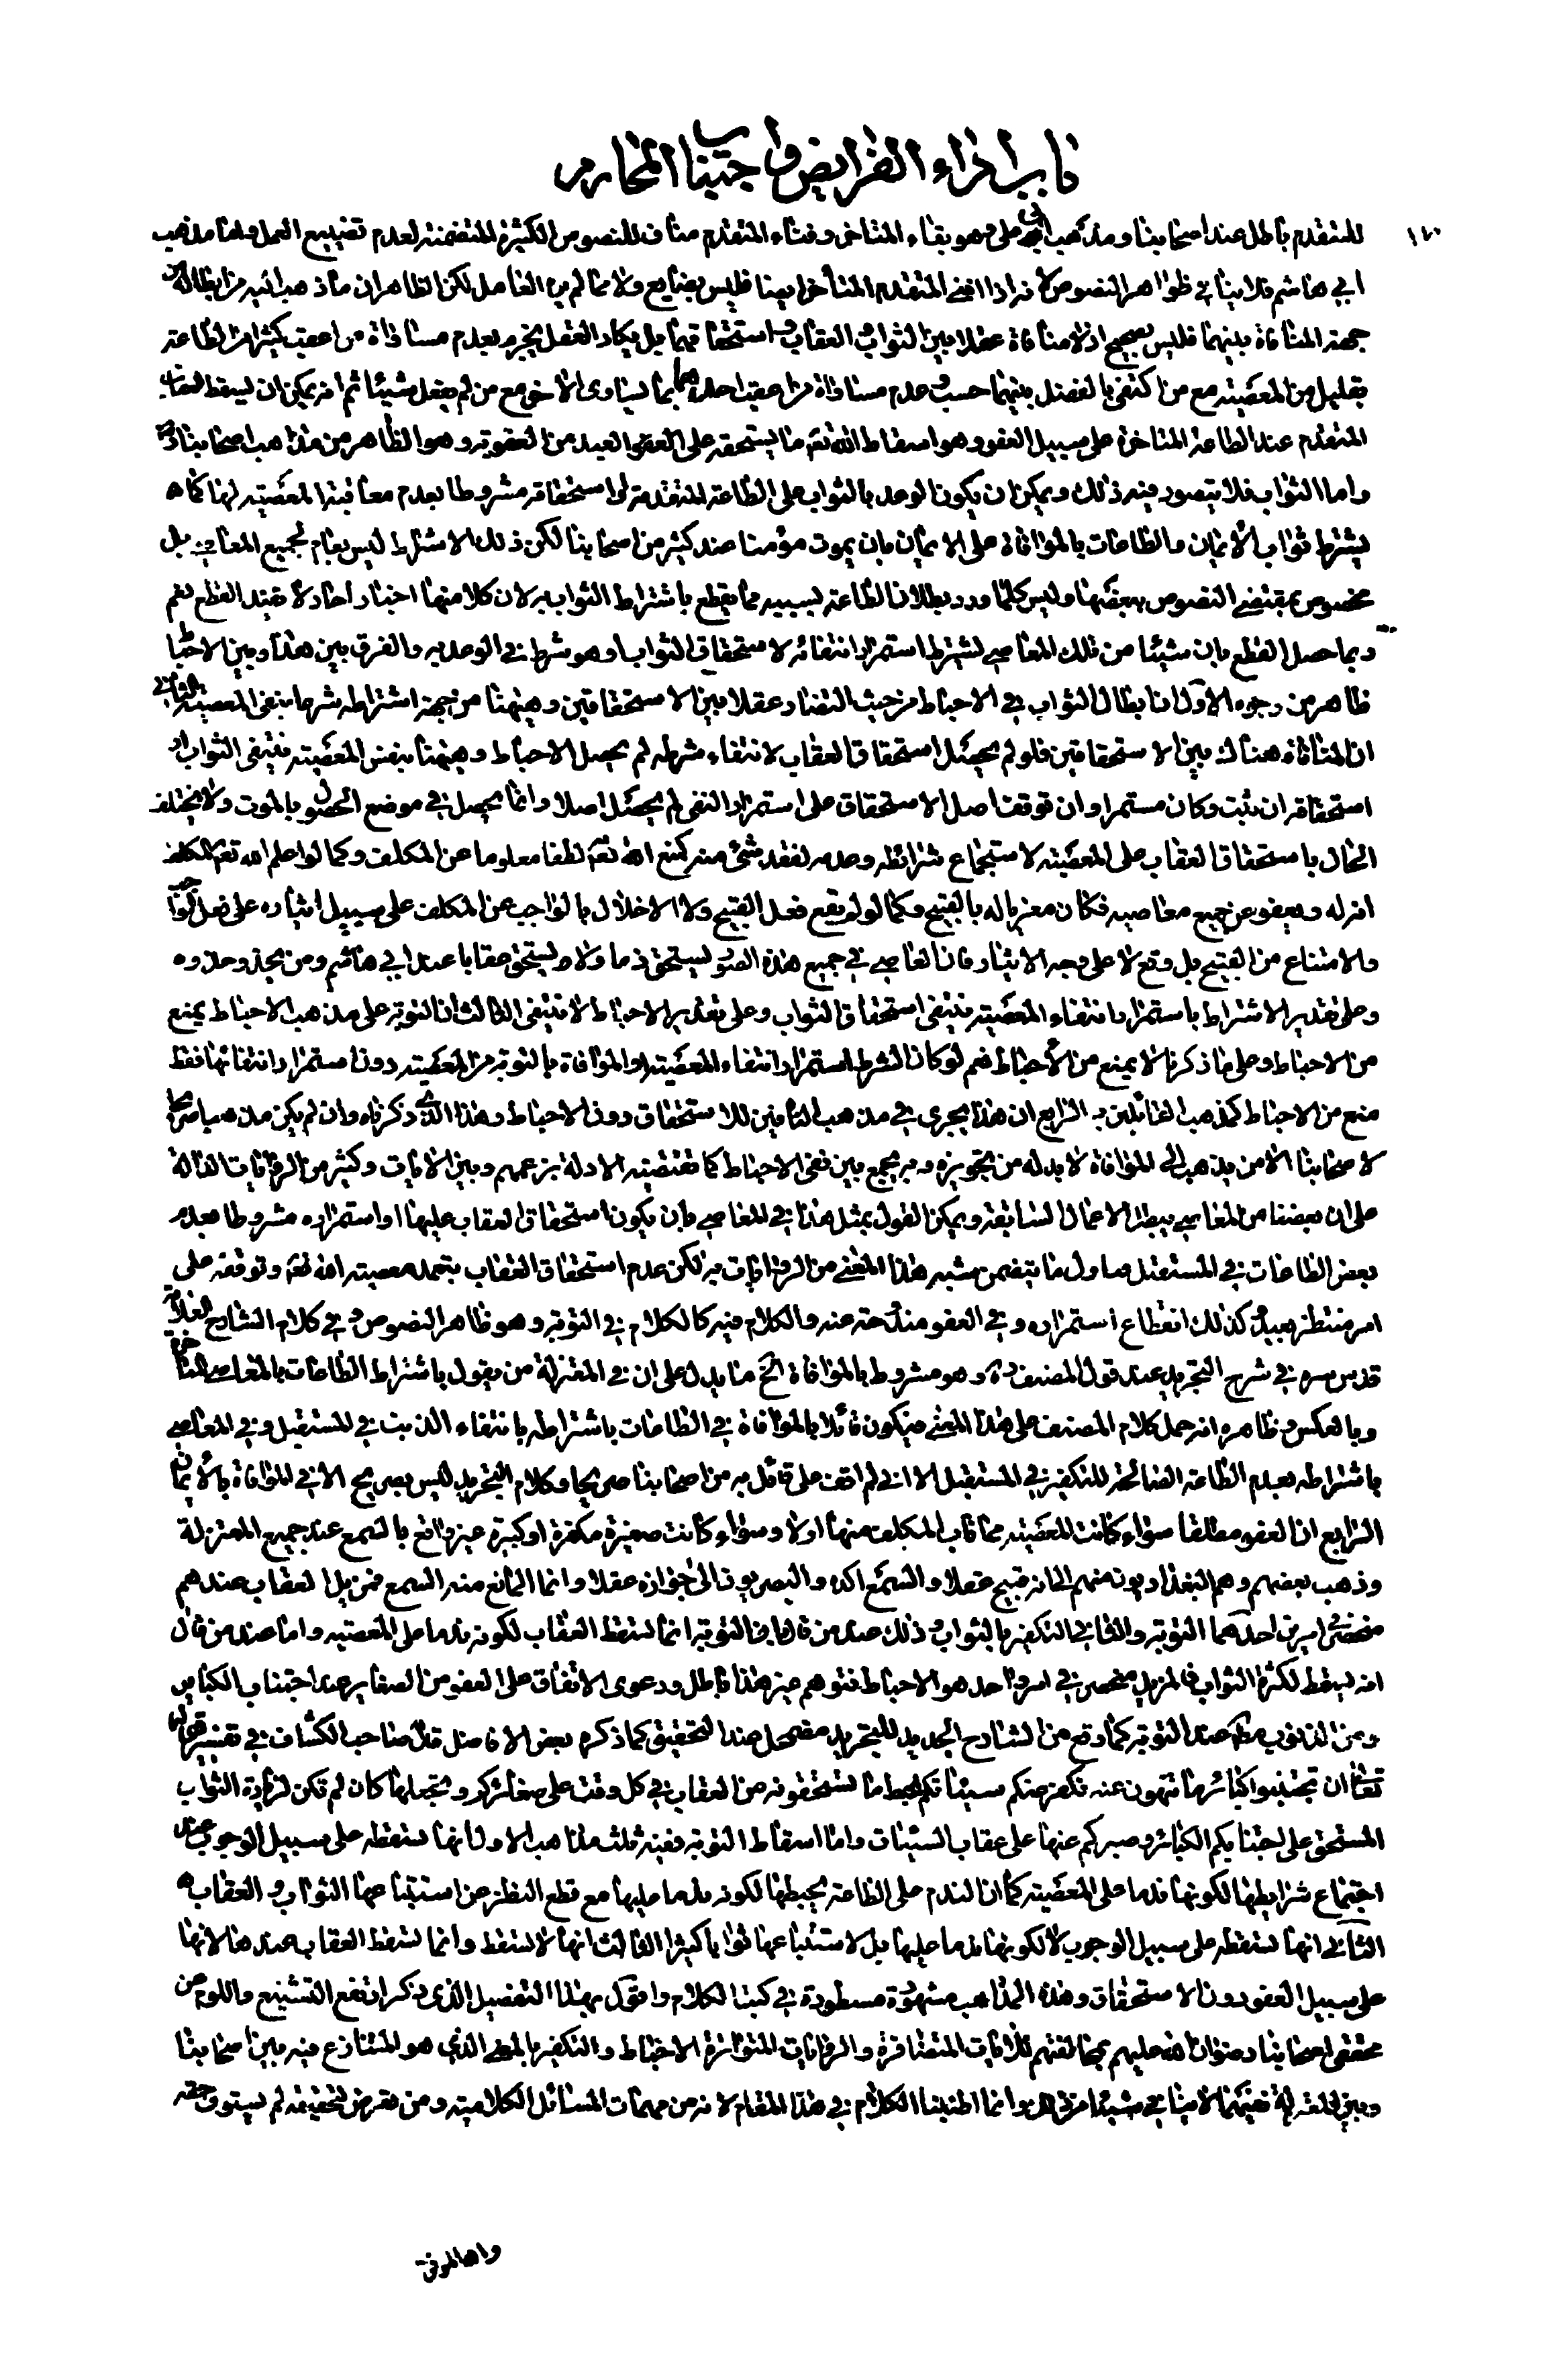 باب اداء الفرايض واجتناب المحارم
١٢٠
للمتقدم باطل عند اصحابنا ومذهب ابي علي وهو بقاء المتاخر وفناء المتقدم مناف للنصوص الكثيرة المتضمنة لعدم تضييع العمل واما مذهب
ابي هاشم فلا ينافي ظواهر النصوص لانه اذا افنى المتقدم المتأخر ايضا فليس بضايع ولا مما لم يره العامل لكن الظاهر ان ما ذهب اليه من ابطاله من
جهة المنافاة بينهما فليس بصحيح اذ لا منافاة عقلا بين الثواب والعقاب واستحقاقهما بل يكاد العقل يجزم بعدم مساواة من اعقب كثيرا من الطاعة
بقليل من المعصية مع من اكتفى بالفضل بينهما حسب وعدم مساواة من اعقب احدهما بما يساوى الاخر مع من لم يفعل شيئا ثم انه يمكن ان يسقط العقاب
المتقدم عند الطاعة المتاخرة على سبيل العفو وهو اسقاط الله تع ما يستحقه على العبد من العقوبة وهو الظاهر من مذاهب اصحابنا ره
واما الثواب فلا يتصور فيه ذلك ويمكن ان يكون الوعد بالثواب على الطاعة المتقدمة او استحقاقه مشروطا بعدم معاقبة المعصية لها كما
يشترط ثواب الايمان والطاعات بالموافاة على الايمان بان يموت مؤمنا عند كثير من اصحابنا لكن ذلك الاشتراط ليس بعام لجميع المعاصي بل
مخصوص بمقتضى النصوص ببعضها وليس كلما ورد بطلان الطاعة بسببه مما يقطع باشتراط الثواب به لان كلا منها اخبار احاد لا تفيد القطع نعم
ربما حصل القطع بان شيئا من تلك المعاصي يشترط استمرار انتفائه لاستحقاق الثواب او هو شرط في الوعد به والفرق بين هذا وبين الاحباط
ظاهر من وجوه الاول ان ابطال الثواب في الاحباط من حيث التضاد عقلا بين الاستحقاقين وهيهنا من جهة اشتراطه شرعا بنفي المعصية الثاني
ان المنافاة هناك بين الاستحقاقين فلو لم يحصل استحقاق العقاب لانتفاء شرطه لم يحصل الاحباط وهيهنا بنفس المعصية ينتفى الثواب او
استحقاقه ان ثبت وكان مستمرا وان توقف اصل الاستحقاق على استمرار النفى لم يحصل اصلا وانما يحصل في موضع الحصول بالموت ولا يختلف
الحال باستحقاق العقاب على المعصية لاستجماع شرائطه وعدمه لفقد شئ منه كمنع الله تع لطفا معلوما عن المكلف وكما لو اعلم الله تع المكلف
انه له ويعفو عن جميع معاصيه فكان مغريا له بالقبيح وكما لو لم يقع فعل القبيح ولا الاخلال بالواجب عن المكلف على سبيل ايثاره على فعل الواجب
والامتناع من القبيح بل وقع لا على وجه الايثار فان العاصي في جميع هذه الصور يستحق ذما ولا يستحق عقابا عند ابي هاشم ومن يحذو حذوه
وعلى تقدير الاشتراط باستمرار انتفاء المعصية ينتفى استحقاق الثواب وعلى تقدير الاحباط لا ينتفى الثالث ان التوبة على مذهب الاحباط يمنع
من الاحباط وعلى ما ذكرنا لا يمنع من الاحباط نعم لو كان الشرط استمرار انتفاء المعصية او الموافاة بالتوبة من المعصية دون استمرار انتفائها فقط
منع من الاحباط كمذهب القائلين به الرابع ان هذا يجرى في مذهب النافين للاستحقاق دون الاحباط وهذا الذي ذكرناه وان لم يكن مذهبا صريحا
لاصحابنا الا من يذهب الى الموافاة لا بد له من تجويزه وبه يجمع بين نفى الاحباط كما تقتضيه الادلة بزعمهم وبين الايات وكثير من الروايات الدالة
على ان بعضا من المعاصي يبطل الاعمال السابقة ويمكن القول بمثل هذا في المعاصي بان يكون استحقاق العقاب عليها او استمراره مشروطا بعدم
بعض الطاعات في المستقبل فيأول ما يتضمن شبه هذا المعنى من الروايات به لكن عدم استحقاق العقاب بتعمد معصية الله تع وتوقفه على
امر منتظر بعيد وكذلك انقطاع استمراره وفي العفو مندوحة عنه والكلام فيه كالكلام في التوبة وهو ظاهر النصوص وفي كلام الشارح العلامة
قدس سره في شرح التجريد عند قول المصنف ره وهو مشروط بالموافاة الخ ما يدل على ان في المعتزلة من يقول باشتراط الطاعات بالمعاصي المتأخرة
وبالعكس وظاهره انه حمل كلام المصنف على هذا المعنى فيكون قائلا بالموافاة في الطاعات باشتراطه بانتفاء الذنب في المستقبل وفي المعاصي
باشتراطه بعدم الطاعة الصالحة للتكفير في المستقبل الا اني لم اقف على قائل به من اصحابنا صريحا وكلام التجريد ليس بصريح الا في الموافاة بالايمان
الرابع ان العفو مطلقا سواء كانت المعصية مما تاب المكلف منها اولا وسواء كانت صغيرة مكفرة او كبيرة غير واقع بالسمع عند جميع المعتزلة
وذهب بعضهم وهم البغداديون منهم الى انه قبيح عقلا والسمع اكده والبصريون الى جوازه عقلا وانما المانع منه السمع فمزيل العقاب عندهم
منحصر في امرين احدهما التوبة والثاني التكفير بالثواب وذلك عند من قال بان التوبة انما تسقط العقاب لكونه ندما على المعصية واما عند من قال
انه يسقط لكثرة الثواب فالمزيل منحصر في امر واحد هو الاحباط فتوهم غير هذا باطل ودعوى الاتفاق على العفو من الصغاير عند اجتناب الكباير
ومن الذنوب مط عند التوبة كما وقع من الشارح الجديد للتجريد مضمحل عند التحقيق كما ذكره بعض الافاضل قال صاحب الكشاف في تفسير قوله
تعالى ان تجتنبوا كبائر ما تنهون عنه نكفر عنكم سيئاتكم نحط ما تستحقونه من العقاب في كل وقت على صغائركم ونجعلها كان لم تكن لزيادة الثواب
المستحق على اجتنابكم الكبائر وصبركم عنها على عقاب السيئات واما اسقاط التوبة ففيه ثلثة مذاهب الاول انها تسقطه على سبيل الوجوب عند
اجتماع شرايطها لكونها ندما على المعصية كما ان الندم على الطاعة يحبطها لكونه ندما عليها مع قطع النظر عن استتباعها الثواب والعقاب
الثاني انها تسقطه على سبيل الوجوب لا لكونها ندما عليها بل لاستتباعها ثوابا كثيرا الثالث انها لا تسقط وانما تسقط العقاب عندها لا بها
على سبيل العفو دون الاستحقاق وهذه المذاهب مشهورة مسطورة في كتب الكلام واقول بهذا التفصيل الذي ذكر ارتفع التشنيع واللوم من
محققي اصحابنا رضوان الله عليهم بمخالفتهم للايات المتضافرة والروايات المتواترة الاحباط والتكفير بالمعنى الذي هو المتنازع فيه بين اصحابنا
وبين المعتزلة نفيهما لا ينافي شيئا من ذلك وانما اطنبنا الكلام في هذا المقام لانه من مهمات المسائل الكلامية ومن تعرض لتحقيقه لم يستوف حقه
والله الموفق